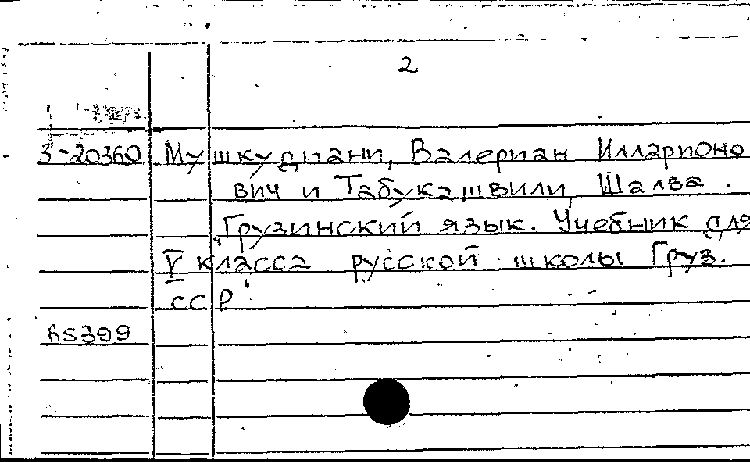 2
3-20360 Мушкудиани, Валериан Илларионо
вич и Табукашвили, Шалва.
Грузинский язык. Учебник для
V класса русской школы Груз.
ССР